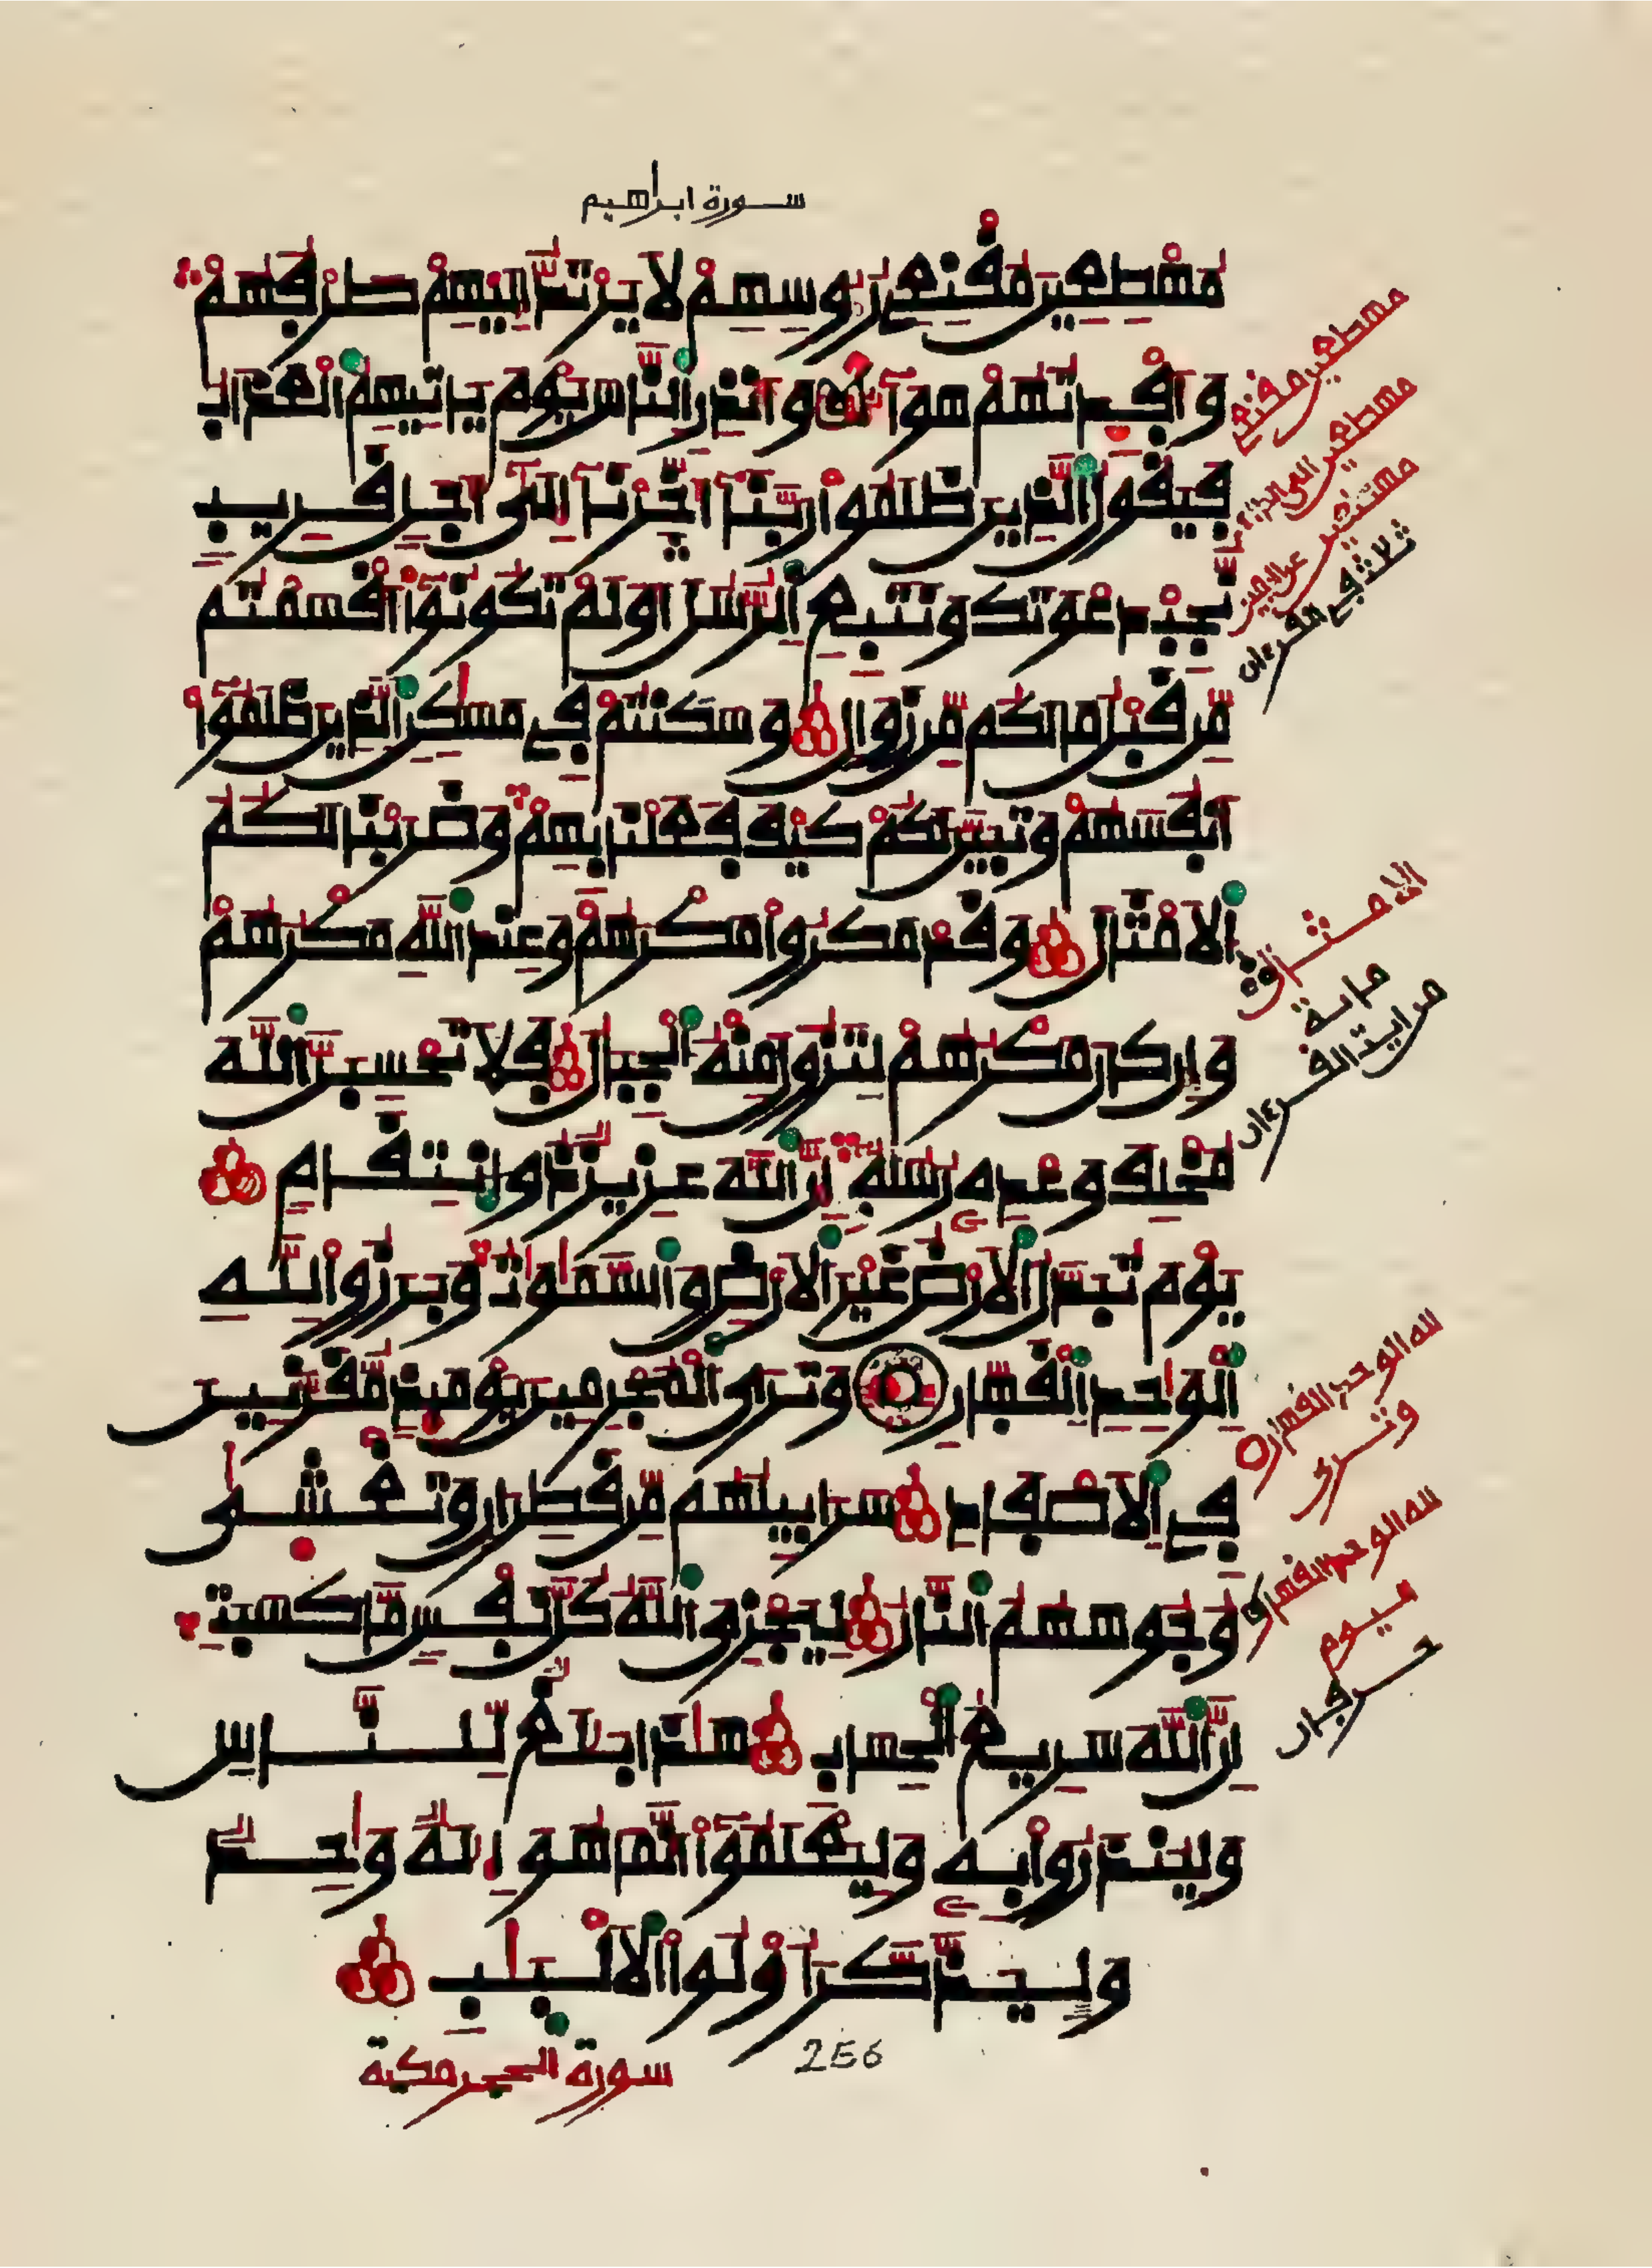 سورة ابراهيم
مهطعين مقنعى رءوسهم لا يرتد إليهم طرفهم
وأفدتهم هوآء وأنذر الناس يوم ياتيهم العذاب
فيقول الذين ظلموا ربنآ أخرنآ إلى أجل قريب
نجب دعوتك ونتبع الرسل أولم تكونوا أقسمتم
من قبل ما لكم من زوال وسكنتم فى مسكن الذين ظلموا
أنفسهم وتبين لكم كيف فعلنا بهم وضربنا لكم
الامثال وقد مكروا مكرهم وعند الله مكرهم
وإن كان مكرهم لتزول منه الجبال فلا تحسبن الله
مخلف وعده رسله إن الله عزيز ذو انتقام
يوم تبدل الارض غير الارض والسموت وبرزوا لله
الوحد القهار وترى المجرمين يومئذ مقرنين
فى الاصفاد سرابيلهم من قطران وتغشى
وجوههم النار ليجزى الله كل نفس ما كسبت
إن الله سريع الحساب هذا بلغ للناس
ولينذروا به وليعلموا أنما هو إله وحد
وليذكر أولوا الالبب
256
سورة الحجر مكية
مهطعين مقنعى
مهطعين الى الداع
ثلث فى القرءان
الامثال
لله الوحد القهار
وترى
لله الوحد القهار
اليوم
حرفان